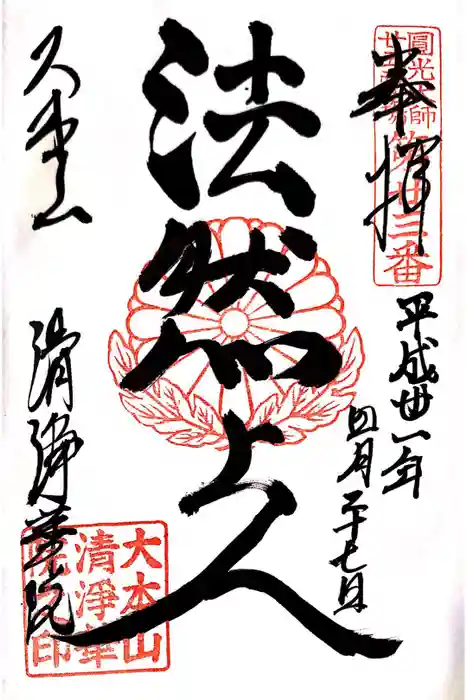 奉拝
圓光大師
廿五霊場
第廿三番
平成廿一年
四月二十七日
法然上人
大本山
清浄華院
大本山
清淨華
院之印